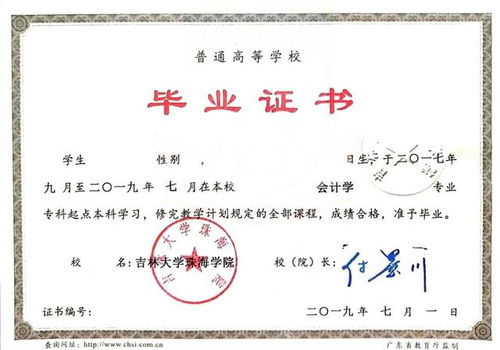 普通高等学校
毕业证书
学生 性别 , 日生于二〇一七年
九月至二〇一九年 七月在本校 会计学 专业
专科起点本科学习，修完教学计划规定的全部课程，成绩合格，准予毕业。
校 名：吉林大学珠海学院 校（院）长：
吉林大学珠海学院
证书编号： 二〇一九年 七月 一日
查询网址：http://www.chsi.com.cn 广东省教育厅监制